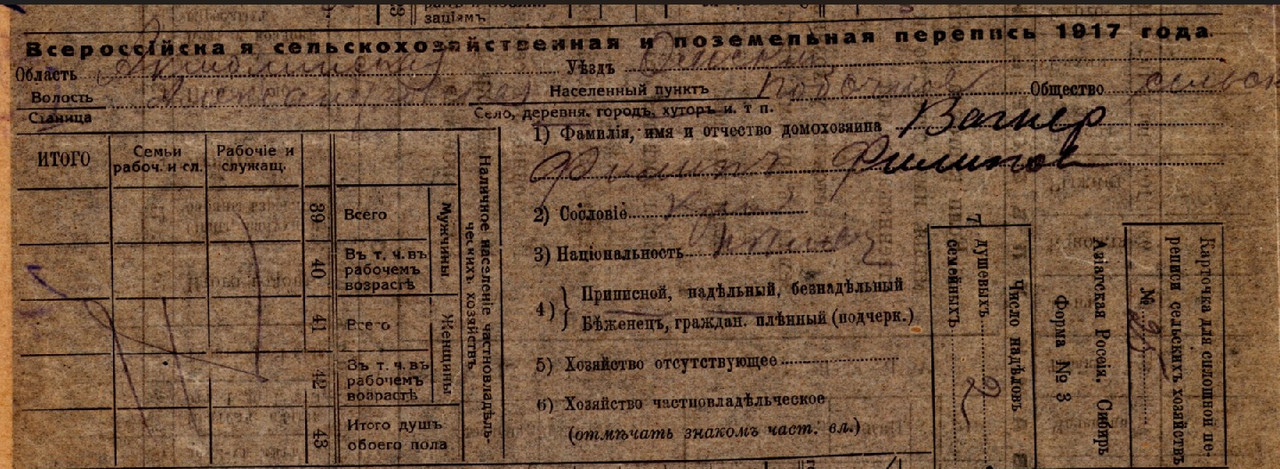 заціямъ.
Всероссійска я сельскохозяйственная и поземельная перепись 1917 года.
Область Акмолинская Уѣздъ Омскій
Волость Населенный пунктъ Общество сельск
Станица Село, деревня, городъ, хуторъ и. т п.
1) Фамилія, имя и отчество домохозяина Вагнер
Филипъ Филипов
2) Сословіе
3) Національность
4) } Приписной, надѣльный, безнадѣльный
Бѣженецъ, граждан. плѣнный (подчерк.)
5) Хозяйство отсутствующее
6) Хозяйство частновладѣльческое
(отмѣчать знакомъ част. вл.)
ИТОГО
Семьи рабоч. и сл.
Рабочіе и служащ.
Наличное населеніе частновладѣльческихъ хозяйствъ
Мужчины
39 Всего
40 Въ т. ч. въ рабочемъ возрастѣ
Женщины
41 Всего
42 Въ т. ч. въ рабочемъ возрастѣ
43 Итого душъ обоего пола
Число надѣловъ
душевыхъ 2
семейныхъ
Карточка для сплошной переписи сельскихъ хозяйствъ
№ 25
Азіатская Россія. Сибирь
Форма № 3